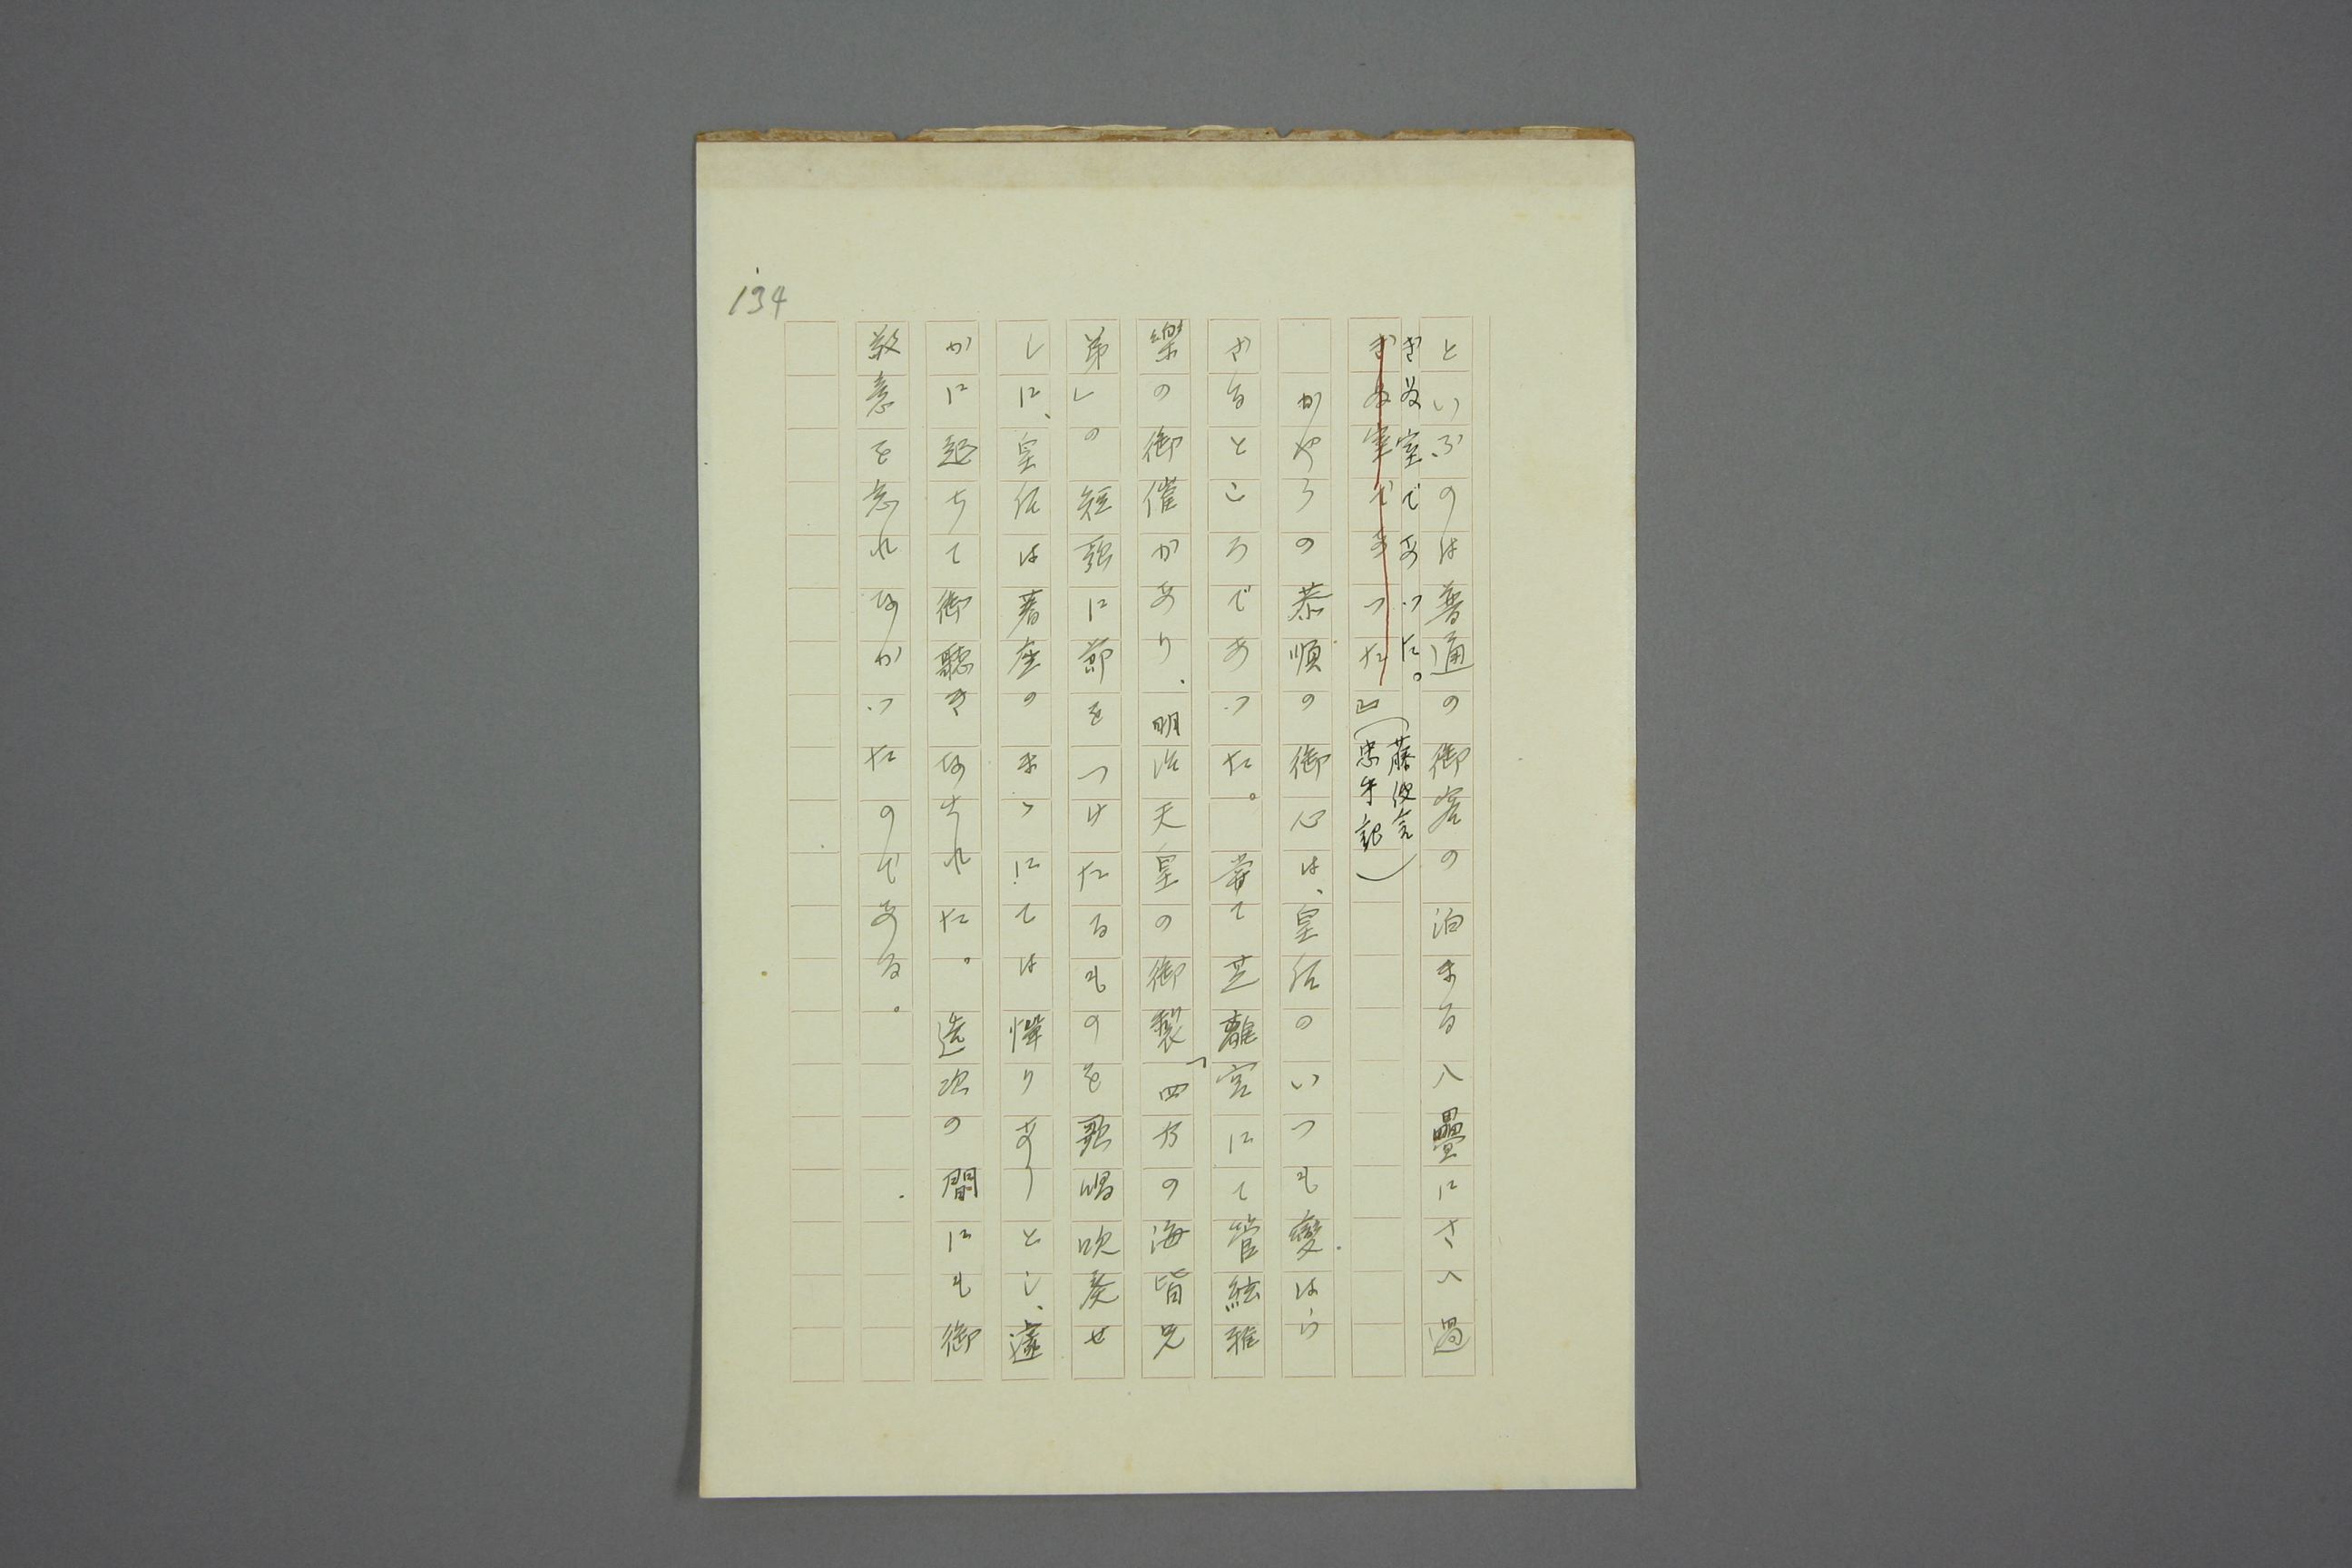 134
といふのは普通の御客の泊まる八疊にさへ過
ぎぬ室であつた。
ぎぬ室であつた』(藤波言忠手記)
かやうの恭順の御心は、皇后のいつも變はら
ざるところであつた。嘗て芝離宮にて管絃雅
樂の御催かあり、明治天皇の御製「四方の海皆兄
弟」の短歌に節をつけたるものを歌唱吹奏せ
しに、皇后は着座のまゝにては憚りありとし、遽
かに起ちて御聽きなされた。造次の間にも御
敬意を忘れなかつたのである。